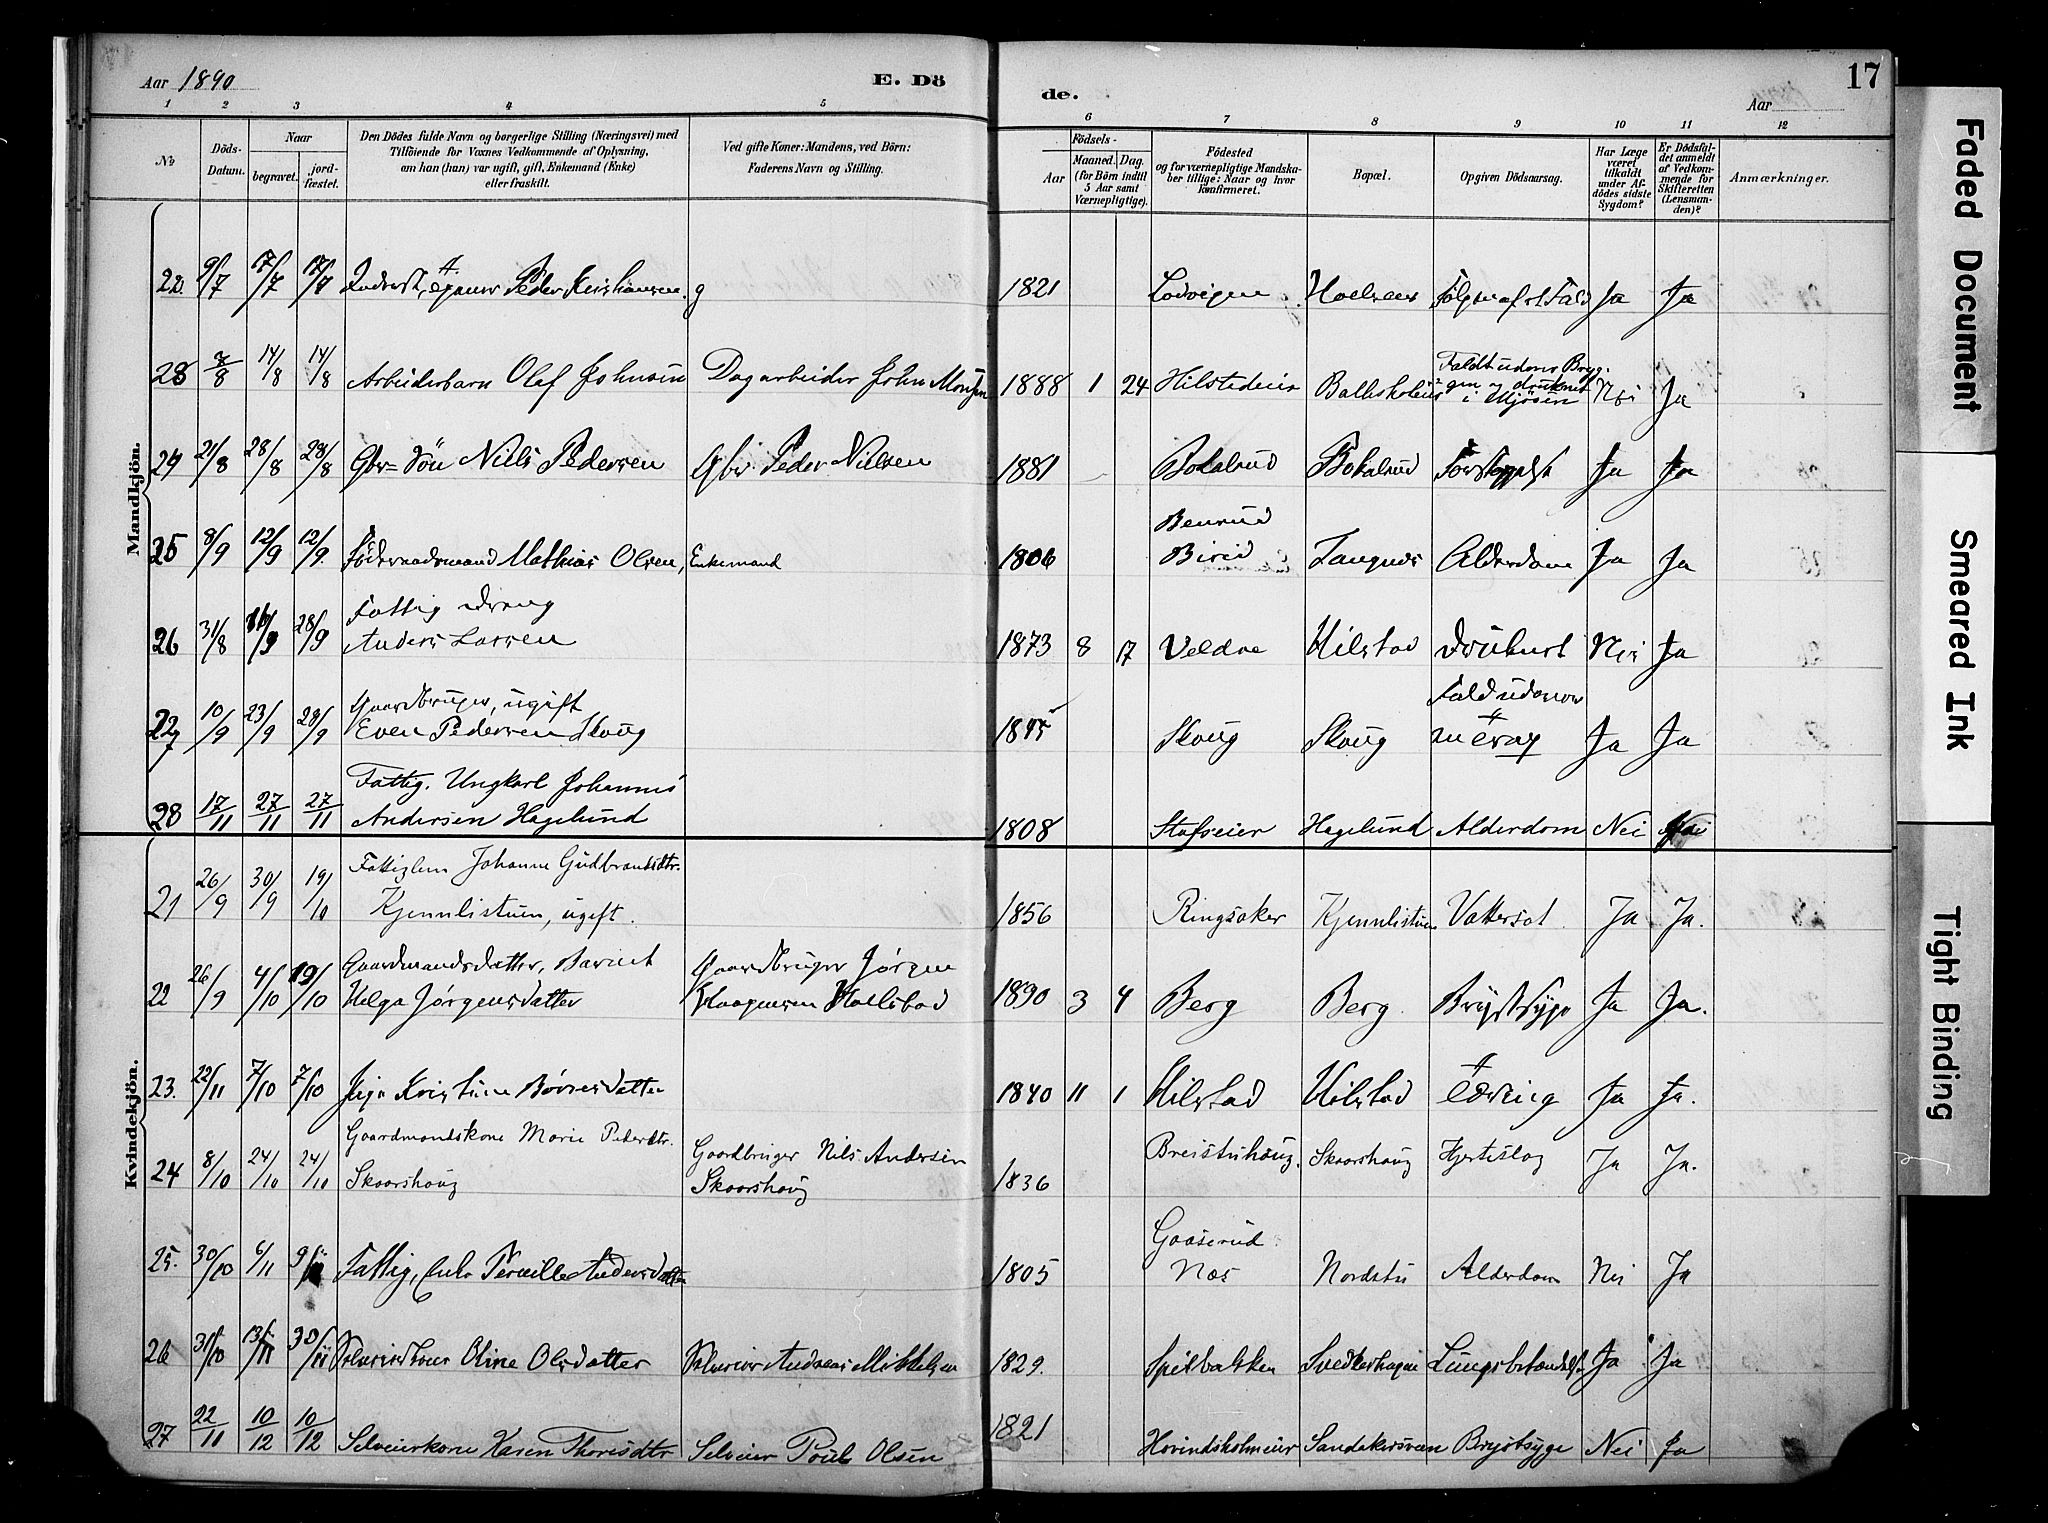 Aar 1890
E. Dö
de.
Aar
17
1 2 3 4 5 6 7 8 9 10 11 12
No
Döds-Datum.
Naar
begravet.
jord-fæstet.
Den Dödes fulde Navn og borgerlige Stilling (Næringsvei) med
Tilföiende for Voxnes Vedkommende af Oplysning,
om han (hun) var ugift, gift, Enkemand (Enke)
eller fraskilt.
Ved gifte Koner: Mandens, ved Börn:
Faderens Navn og Stilling.
Födsels-
Aar
Maaned. Dag.
(for Börn indtil
5 Aar samt
Værnepligtige).
Födested
og for værnepligtige Mandska-
ber tillige: Naar og hvor
konfirmeret.
Bopæl.
Opgiven Dödsaarsag.
Har Læge
været
tilkaldt
under Af-
dödes sidste
Sygdom?
Er Dödsfal-
det anmeldt
af Vedkom-
mende for
Skifteretten
(Lensman-
den)?
Anmærkninger.
Mandkjön.
22. 9/7 17/7 17/7 Peder Kristiansen. g 1821 Ja Ja
23 8/8 14/8 14/8 Arbeiderbarn Olaf Johnsen Dagarbeider John 1888 1 24 Hilstadeie Nei Ja
i Mjösen
24 21/8 28/8 28/8 Gbr= Sön Niels Pedersen Gbr. Peder Nielsen 1881 Ja Ja
25 8/9 12/9 12/9 Föderaadsmand Mathias Olsen, Enkemand 1806 Benrud Birid Tangnes Alderdom Ja Ja
Fattig Dreng
26 31/8 28/9 Anders Larsen 1873 8 17 Veldre Hilstad Druknet Nei Ja
Gaardbruger, ugift
27 10/9 23/9 28/9 Even Pedersen Skoug Skoug Skoug Fald udover Ja Ja
Fattig. Ungkarl Johannes
28 17/11 27/11 27/11 Andersen Hagelund 1808 Stafseier Hagelund Alderdom Nei Nei
Kvindekjön.
21 26/9 30/9 19/10 Fattiglem Johanne Gudbrandsdtr.
Kjennlistuen, ugift. 1856 Ringsaker Kjennlistuen Vattersot Ja Ja.
Gaardmandsdatter, Barnet Gaardbruger Jørgen
22 26/9 4/10 19/10 Helga Jørgensdatter Haagensen Hollstad 1890 3 4 Berg Berg. Brystsyge Ja Ja.
23. 22/11 7/10 7/10 Kristine Børresdatter 1840 11 1 Hilstad Hilstad Tæring Ja Ja.
Gaardmandskone Marie Pedersdtr. Gaardbruger Nils Andersen
24 8/10 24/10 24/10 Skaarshoug Skaarshoug 1836 Breistuhaug. Skaarshoug Hjerteslag Ja Ja.
25. 30/10 6/11 9/11 Fattig, Enke Pernille Andersdatter 1805 Gaaserud Næs Nordstu Alderdom Nei Ja
26 31/10 13/11 30/11 Selveierskone Oline Olsdatter Selveier Andreas Mikkelsen 1829. Spitbakken Lungebetændelse Ja Ja
27 22/11 10/12 10/12 Selveierkone Karen Thoresdtr Selveier Poul Olsen 1821 Hovindsholmeier Sandakersveen Brystsyge Nei Ja
Faded Document
Smeared Ink
Tight Binding